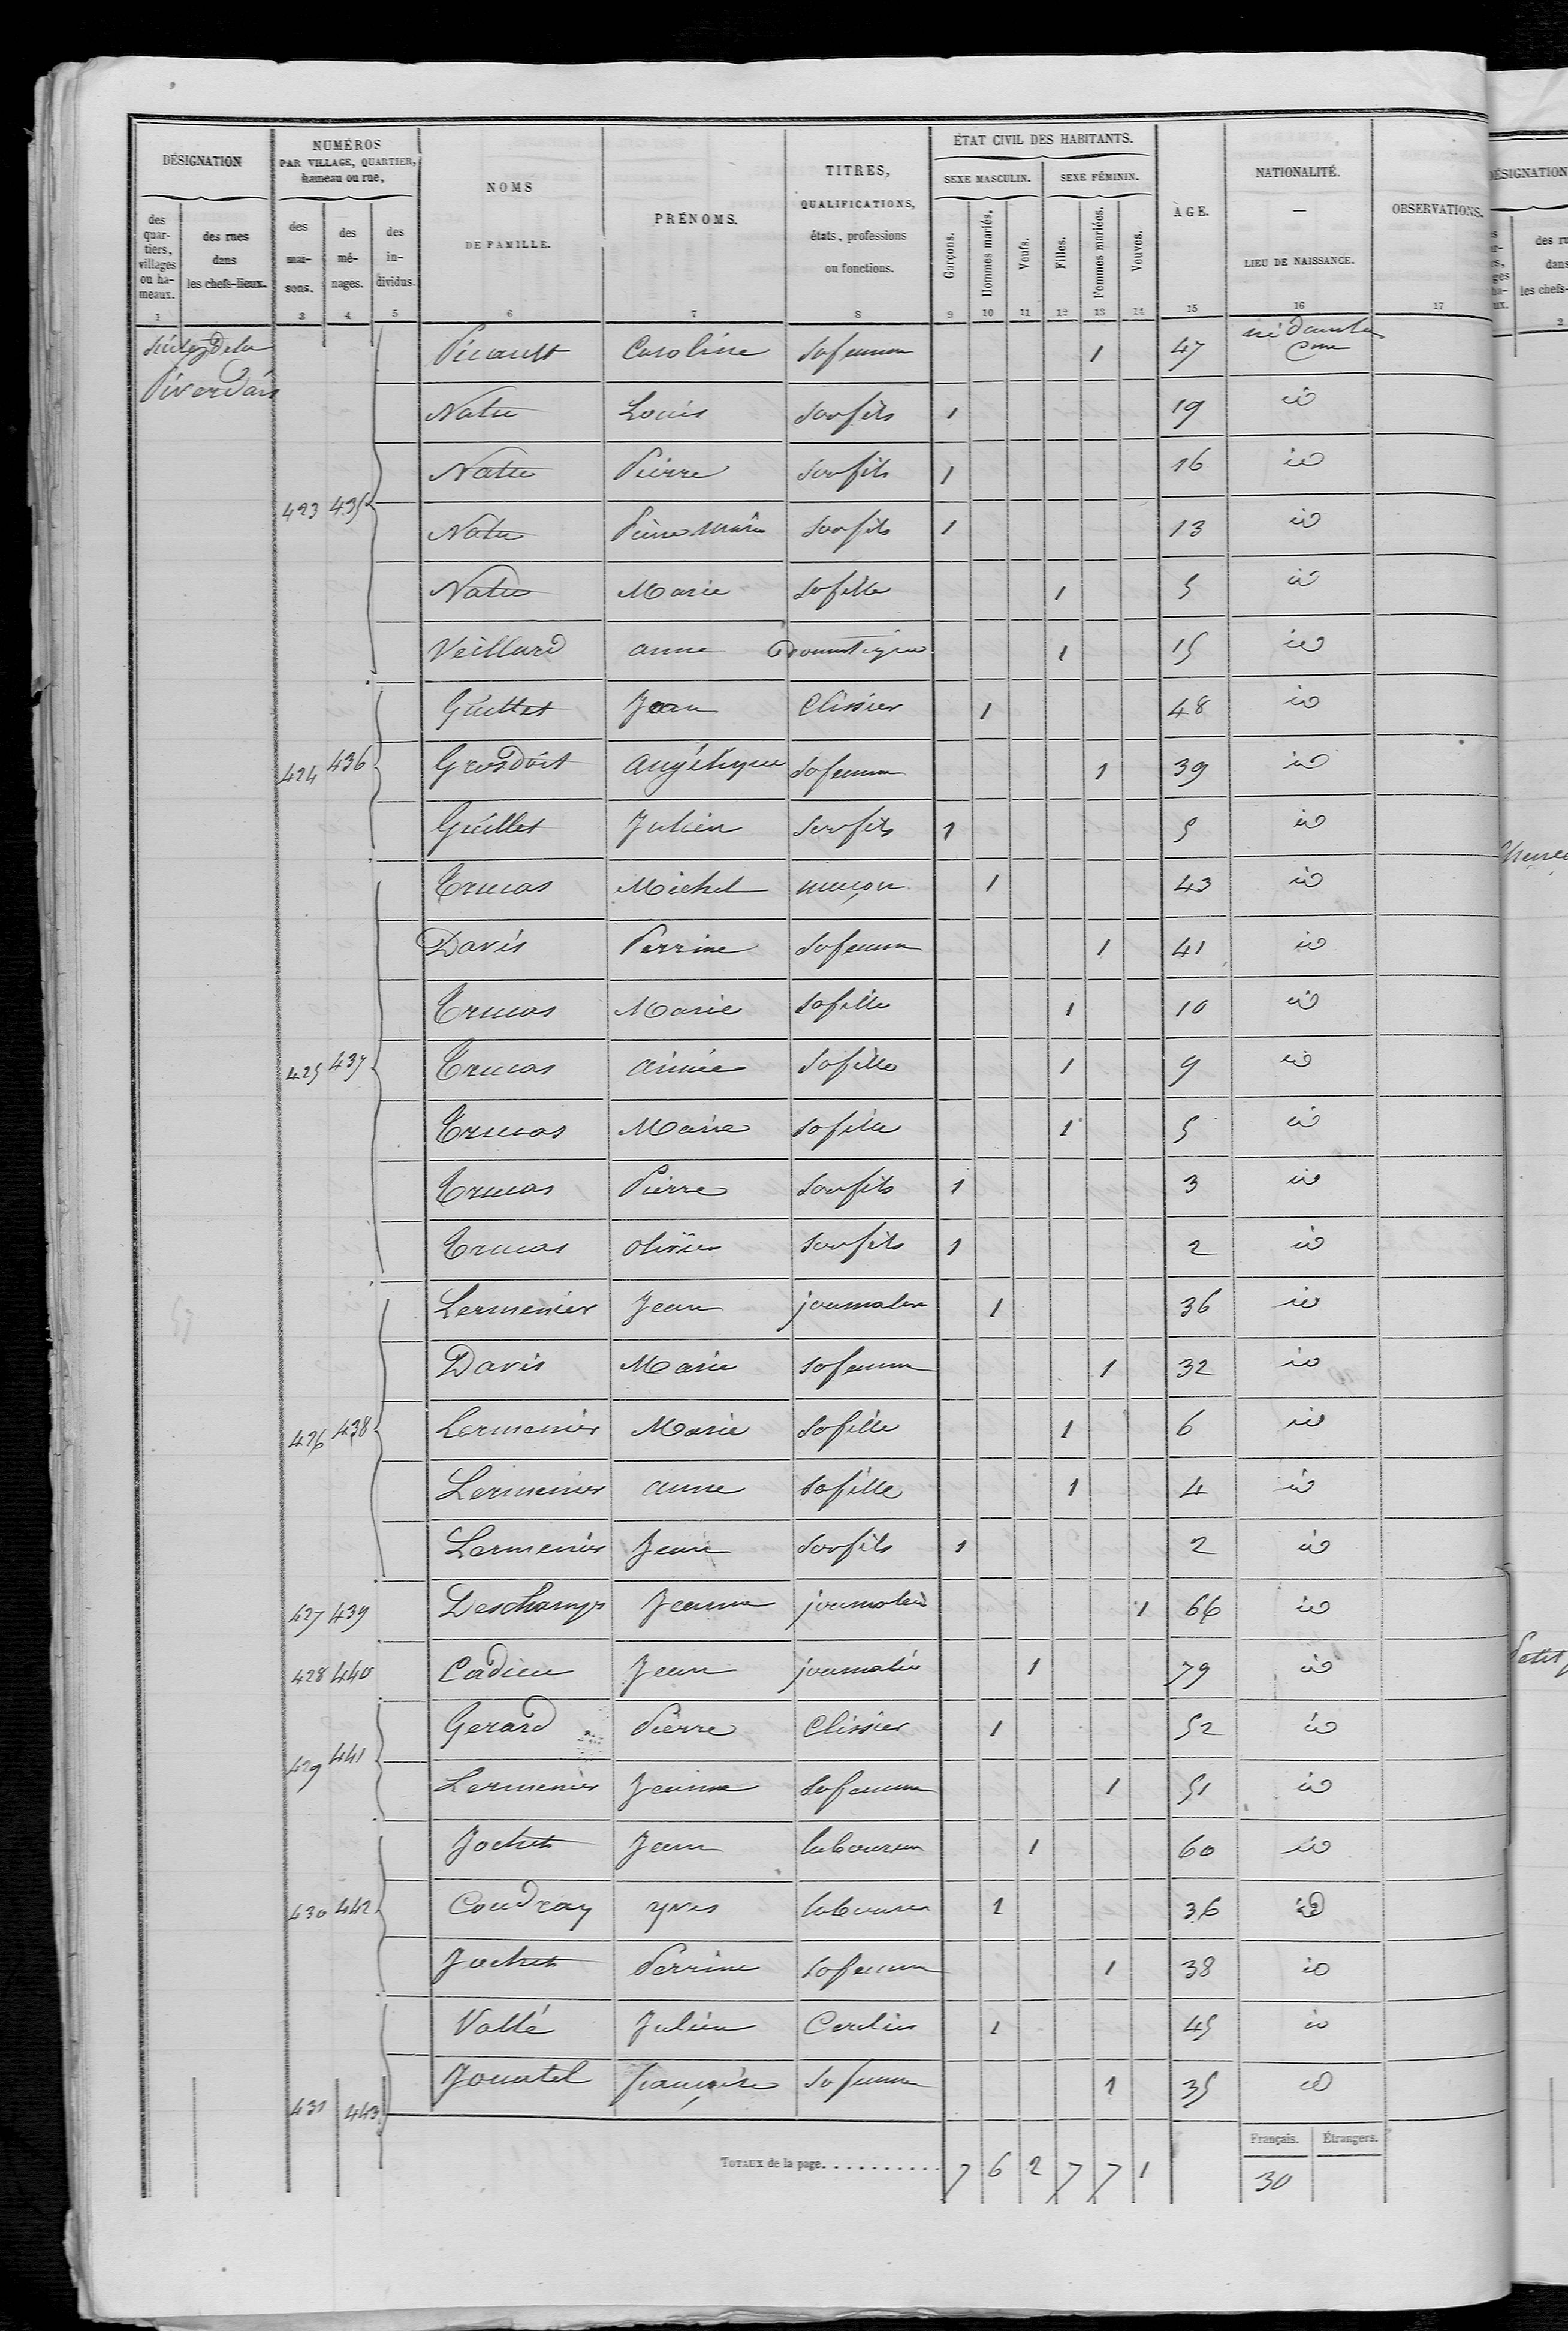 DÉSIGNATION
des quartiers, villages ou hameaux.
des rues dans les chefs-lieux.
NUMÉROS PAR VILLAGE, QUARTIER, hameau ou rue,
des maisons.
des ménages.
des individus.
NOMS DE FAMILLE.
PRÉNOMS.
TITRES, QUALIFICATIONS, états, professions ou fonctions.
ÉTAT CIVIL DES HABITANTS.
SEXE MASCULIN.
SEXE FÉMININ.
Garçons.
Hommes mariés.
Veufs.
Filles.
Femmes mariées.
Veuves.
ÂGE.
NATIONALITÉ. — LIEU DE NAISSANCE.
OBSERVATIONS.
1 2 3 4 5 6 7 8 9 10 11 12 13 14 15 16 17
Picault Caroline sa femme 1 47
Natu Louis son fils 1 19 id
Natu Pierre son fils 1 16 id
423 435 Natu Pierre Marie son fils 1 13 id
Natu Marie sa fille 1 5 id
Veillard anne Domestique 1 15 id
Guillet Jean Clissier 1 48 id
424 436 Grosdoit Angélique sa femme 1 39 id
Guillet Julien son fils 1 5 id
Trucas Michel maçon 1 43 id
Davis Perrine sa femme 1 41 id
Trucas Marie sa fille 1 10 id
425 437 Trucas aimée sa fille 1 9 id
Trucas Marie sa fille 1 5 id
Trucas Pierre son fils 1 3 id
Trucas olivier son fils 1 2 id
Lermenier Jean journalier 1 36 id
Davis Marie sa femme 1 32 id
426 438 Lermenier Marie sa fille 1 6 id
Lermenier anne sa fille 1 4 id
Lermenier Jean son fils 1 2 id
427 439 Deschamps Jeanne journalière 1 66 id
428 440 Cadieu Jean journalier 1 79 id
429 441 Gerard Pierre Clissier 1 52 id
Lermenier Jeanne sa femme 1 51 id
Jochet Jean laboureur 1 60 id
430 442 Coudray yves laboureur 1 36 id
Jochet Perrine sa femme 1 38 id
Vallé Julien Cerclier 1 45 id
431 443 Jouatel françoise sa femme 1 35 id
Français. Étrangers.
TOTAUX de la page. 7 6 2 7 7 1 30